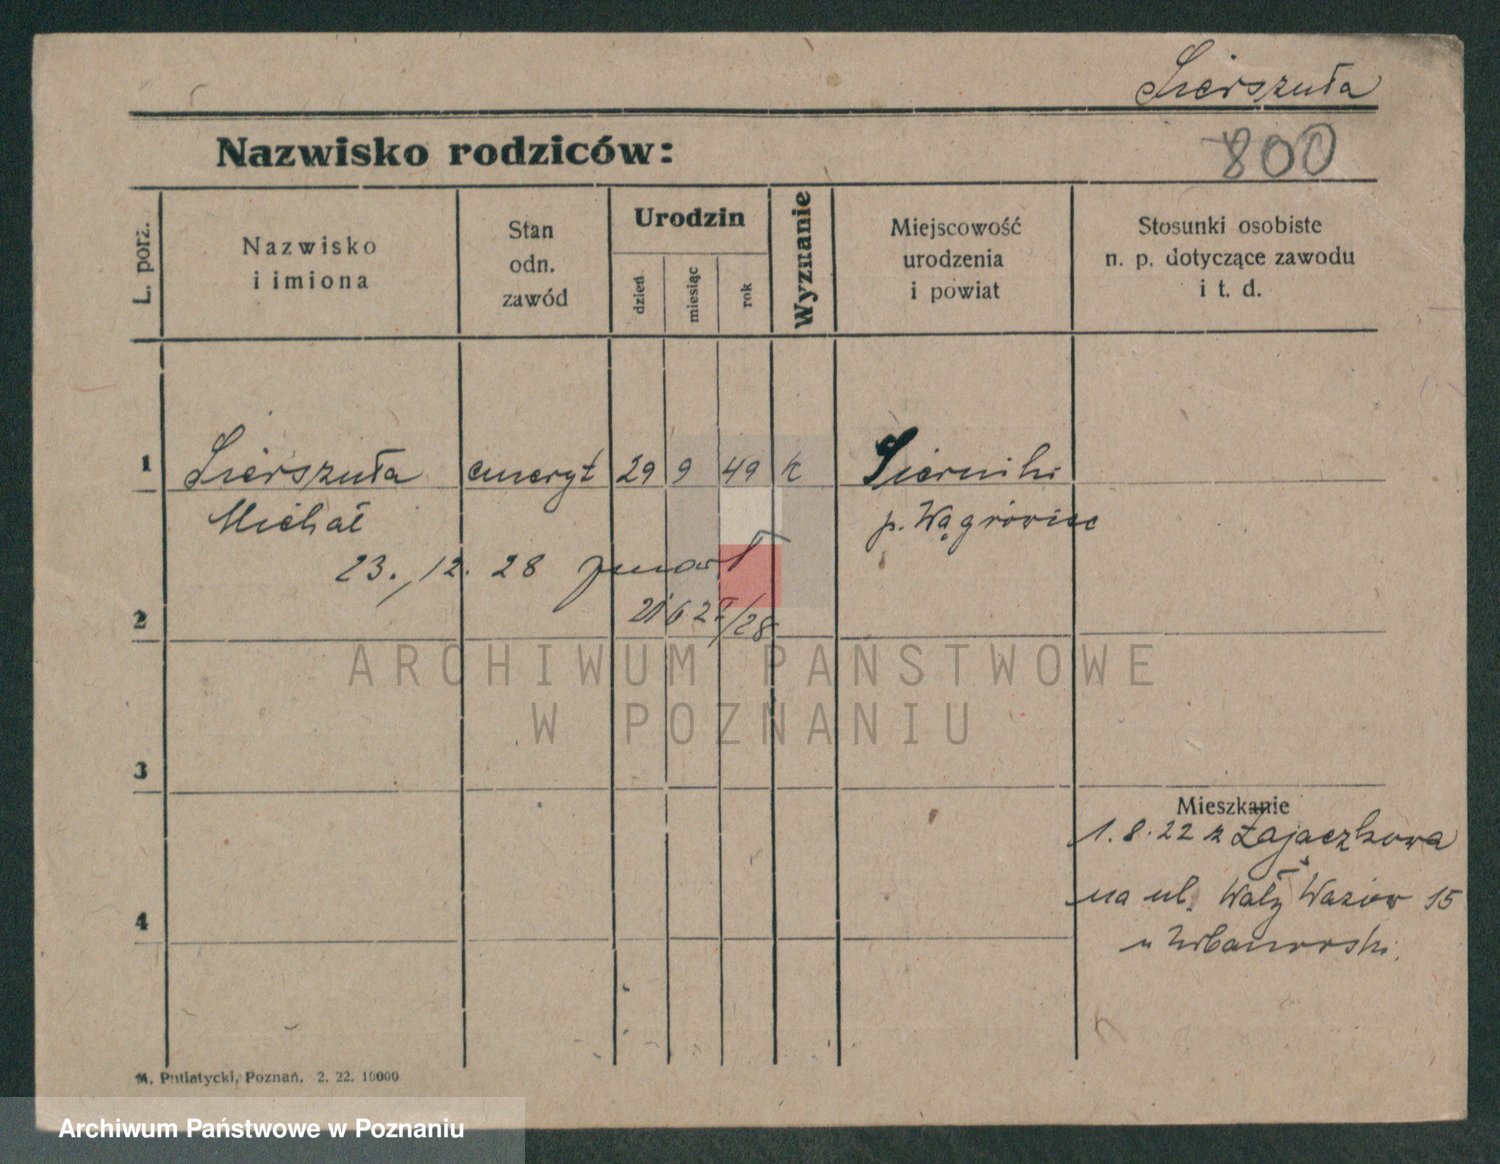 Sierszuła
800
Nazwisko rodziców:
L. porz.
Nazwisko
i imiona
Stan
odn.
zawód
Urodzin
dzień
miesiąc
rok
Wyznanie
Miejscowość
urodzenia
i powiat
Stosunki osobiste
n. p. dotyczące zawodu
i t. d.
1 Sierszuła emeryt 29 9 49 k Sierniki
Michał p. Wągrowiec
23. 12. 28 zmarł
2
/28
ARCHIWUM PAŃSTWOWE
W POZNANIU
3
Mieszkanie
1.8.22 z Zajączkowa
na ul. Wały Wazów 15
u Urbanowski.
4
M. Putiatycki, Poznań. 2. 22. 10000
Archiwum Państwowe w Poznaniu